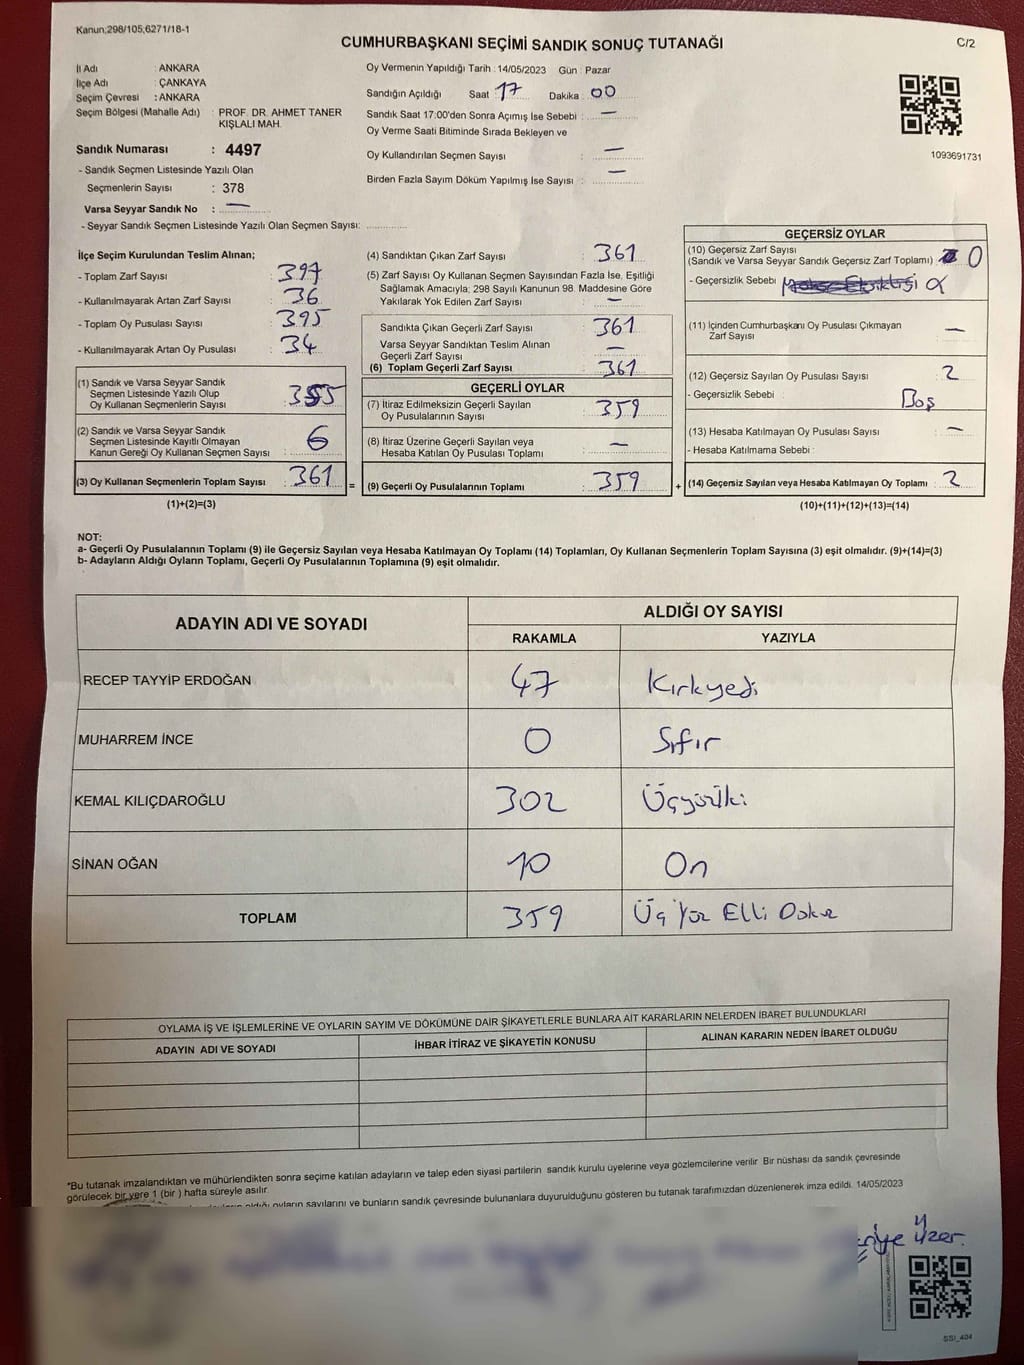 Kanun;298/105;6271/18-1
CUMHURBAŞKANI SEÇİMİ SANDIK SONUÇ TUTANAĞI
C/2
İl Adı : ANKARA
İlçe Adı : ÇANKAYA
Seçim Çevresi : ANKARA
Seçim Bölgesi (Mahalle Adı) : PROF. DR. AHMET TANER
KIŞLALI MAH.
Sandık Numarası : 4497
- Sandık Seçmen Listesinde Yazılı Olan
Seçmenlerin Sayısı : 378
Varsa Seyyar Sandık No : —
- Seyyar Sandık Seçmen Listesinde Yazılı Olan Seçmen Sayısı: ............
Oy Vermenin Yapıldığı Tarih : 14/05/2023 Gün : Pazar
Sandığın Açıldığı Saat : 17 Dakika : 00
Sandık Saat 17:00'den Sonra Açımış İse Sebebi : —
Oy Verme Saati Bitiminde Sırada Bekleyen ve
Oy Kullandırılan Seçmen Sayısı : —
Birden Fazla Sayım Döküm Yapılmış İse Sayısı : —
1093691731
İlçe Seçim Kurulundan Teslim Alınan;
- Toplam Zarf Sayısı : 397
- Kullanılmayarak Artan Zarf Sayısı : 36
- Toplam Oy Pusulası Sayısı : 395
- Kullanılmayarak Artan Oy Pusulası : 34
(1) Sandık ve Varsa Seyyar Sandık
Seçmen Listesinde Yazılı Olup
Oy Kullanan Seçmenlerin Sayısı : 355
(2) Sandık ve Varsa Seyyar Sandık
Seçmen Listesinde Kayıtlı Olmayan
Kanun Gereği Oy Kullanan Seçmen Sayısı : 6
(3) Oy Kullanan Seçmenlerin Toplam Sayısı : 361 =
(1)+(2)=(3)
(4) Sandıktan Çıkan Zarf Sayısı : 361
(5) Zarf Sayısı Oy Kullanan Seçmen Sayısından Fazla İse, Eşitliği
Sağlamak Amacıyla; 298 Sayılı Kanunun 98. Maddesine Göre
Yakılarak Yok Edilen Zarf Sayısı : —
Sandıkta Çıkan Geçerli Zarf Sayısı : 361
Varsa Seyyar Sandıktan Teslim Alınan
Geçerli Zarf Sayısı : —
(6) Toplam Geçerli Zarf Sayısı : 361
GEÇERLİ OYLAR
(7) İtiraz Edilmeksizin Geçerli Sayılan
Oy Pusulalarının Sayısı : 359
(8) İtiraz Üzerine Geçerli Sayılan veya
Hesaba Katılan Oy Pusulası Toplamı : —
(9) Geçerli Oy Pusulalarının Toplamı : 359 +
GEÇERSİZ OYLAR
(10) Geçersiz Zarf Sayısı
(Sandık ve Varsa Seyyar Sandık Geçersiz Zarf Toplamı) : 0
- Geçersizlik Sebebi :
(11) İçinden Cumhurbaşkanı Oy Pusulası Çıkmayan
Zarf Sayısı : —
(12) Geçersiz Sayılan Oy Pusulası Sayısı : 2
- Geçersizlik Sebebi : Boş
(13) Hesaba Katılmayan Oy Pusulası Sayısı : —
- Hesaba Katılmama Sebebi :
(14) Geçersiz Sayılan veya Hesaba Katılmayan Oy Toplamı : 2
(10)+(11)+(12)+(13)=(14)
NOT:
a- Geçerli Oy Pusulalarının Toplamı (9) ile Geçersiz Sayılan veya Hesaba Katılmayan Oy Toplamı (14) Toplamları, Oy Kullanan Seçmenlerin Toplam Sayısına (3) eşit olmalıdır. (9)+(14)=(3)
b- Adayların Aldığı Oyların Toplamı, Geçerli Oy Pusulalarının Toplamına (9) eşit olmalıdır.
ADAYIN ADI VE SOYADI ALDIĞI OY SAYISI
RAKAMLA YAZIYLA
RECEP TAYYİP ERDOĞAN 47 Kırkyedi
MUHARREM İNCE 0 Sıfır
KEMAL KILIÇDAROĞLU 302 Üçyüziki
SİNAN OĞAN 10 On
TOPLAM 359 Üç Yüz Elli Dokuz
OYLAMA İŞ VE İŞLEMLERİNE VE OYLARIN SAYIM VE DÖKÜMÜNE DAİR ŞİKAYETLERLE BUNLARA AİT KARARLARIN NELERDEN İBARET BULUNDUKLARI
ADAYIN ADI VE SOYADI İHBAR İTİRAZ VE ŞİKAYETİN KONUSU ALINAN KARARIN NEDEN İBARET OLDUĞU
*Bu tutanak imzalandıktan ve mühürlendikten sonra seçime katılan adayların ve talep eden siyasi partilerin sandık kurulu üyelerine veya gözlemcilerine verilir. Bir nüshası da sandık çevresinde
görülecek bir yere 1 (bir ) hafta süreyle asılır.
aldığı oyların sayılarını ve bunların sandık çevresinde bulunanlara duyurulduğunu gösteren bu tutanak tarafımızdan düzenlenerek imza edildi. 14/05/2023
SSI_404